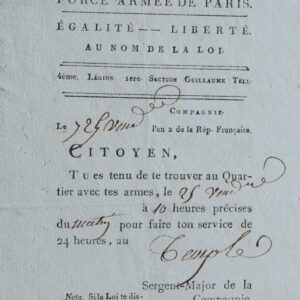 FORCE ARMÉE DE PARIS.
ÉGALITÉ —— LIBERTÉ.
AU NOM DE LA LOI.
4ème. LÉGION. 1ere. SECTION GUILLAUME TELL.
COMPAGNIE.
Le 25 Vend l'an 2 de la Rép. Française.
CITOYEN,
TU es tenu de te trouver au Quar-
tier avec tes armes, le 25 Vend
à 10 heures précises
du matin pour faire ton service de
24 heures, au Temple
Sergent-Major de la
Compagnie
Nota. Si la Loi te dis-